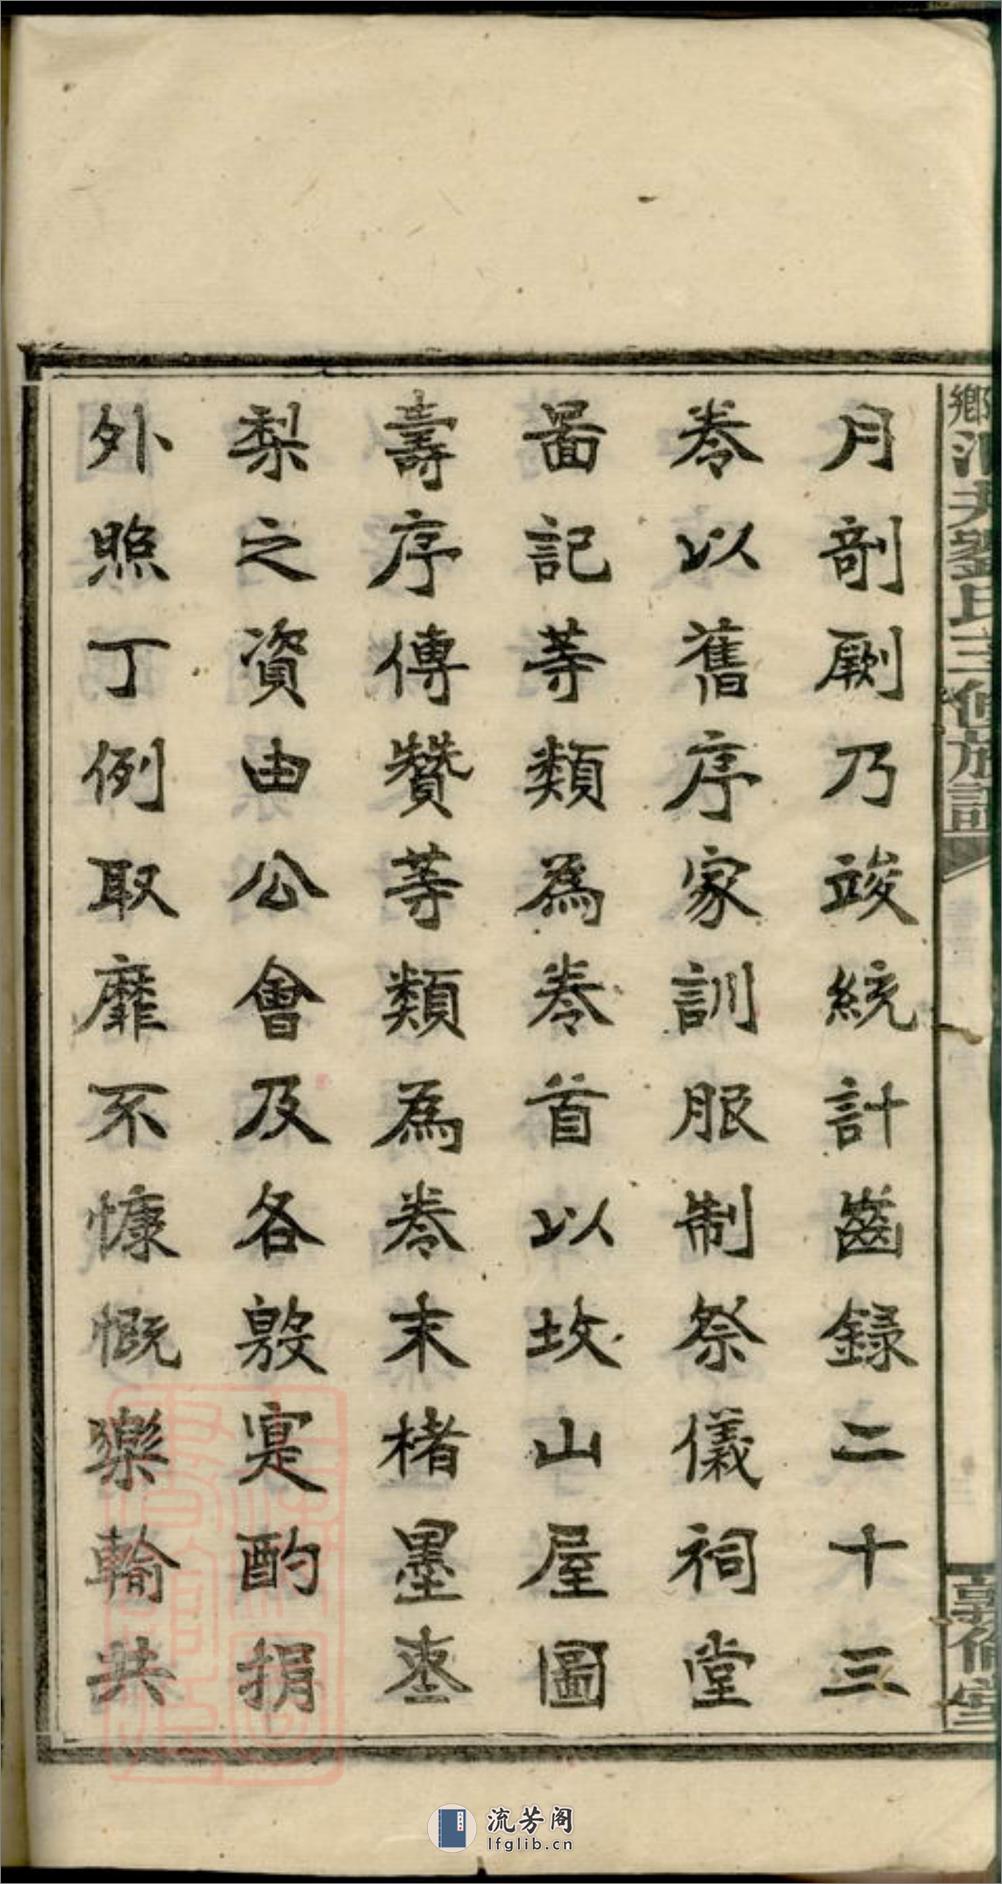 月剞劂乃竣統計齒錄二十三
卷以舊序家訓服制祭儀祠堂
啚記等類為卷首以坟山屋圖
壽序傳贊等類為卷末楮墨枣
梨之資由公會及各敦寔酌捐
外照丁例取靡不慷慨樂輸共
劉氏三修族譜
敦倫堂
流芳阁
lfglib.cn